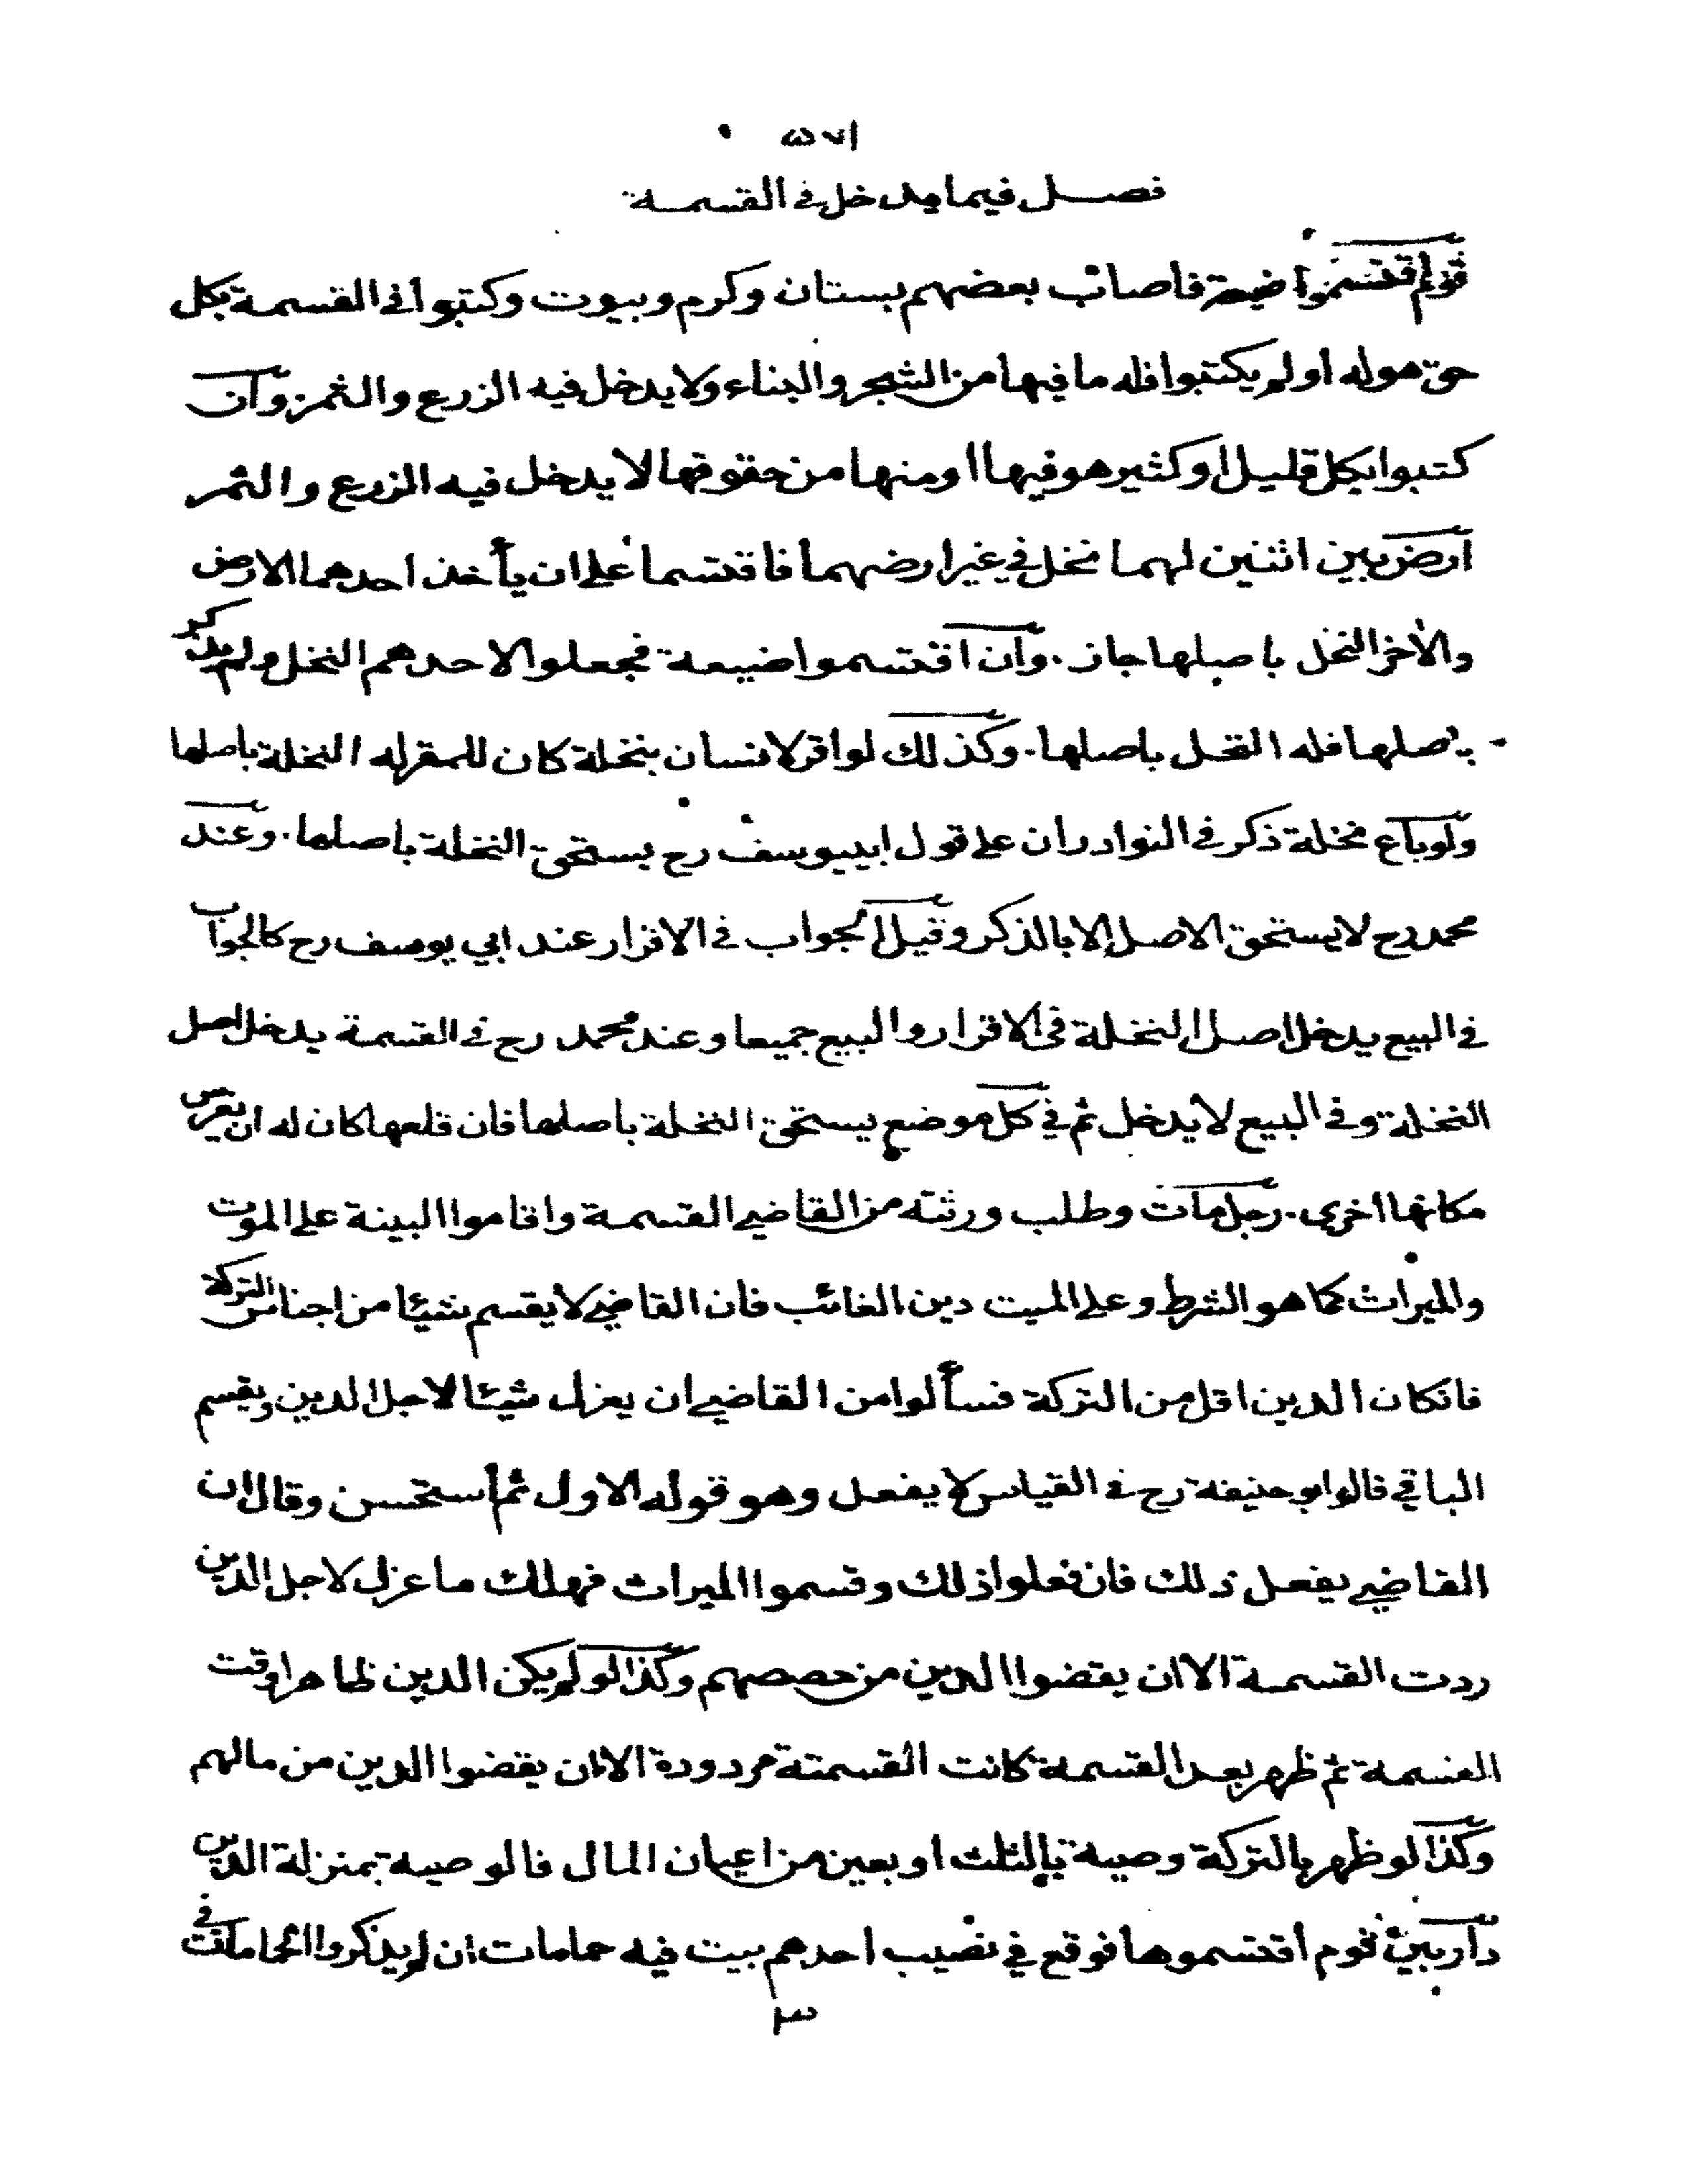 فصل فيما يدخل في القسمة
قوم اقتسموا ضيعة فاصاب بعضهم بستان وكرم وبيوت وكتبوا في القسمة بكل
حق هو له او لم يكتبوا فله ما فيها من الشجر والبناء ولا يدخل فيه الزرع والثمر وان
كتبوا بكل قليل او كثير هو فيها او منها من حقوقها لا يدخل فيه الزرع والثمر
ارض بين اثنين لهما نخل في غير ارضهما فاقتسما على ان يأخذ احدهما الارض
والاخر النخل باصلها جاز . وان اقتسموا ضيعة فجعلوا لاحدهم النخل ولم يذكر
باصلها فله النخل باصلها . وكذلك لو اقر لانسان بنخلة كان للمقر له النخلة باصلها
ولو باع نخلة ذكر في النوادر ان على قول ابييوسف رح يستحق النخلة باصلها . وعند
محمد رح لا يستحق الاصل الا بالذكر وقيل الجواب في الاقرار عند ابي يوسف رح كالجواب
في البيع يدخل اصل النخلة في الاقرار والبيع جميعا وعند محمد رح في القسمة يدخل اصل
النخلة وفي البيع لا يدخل ثم في كل موضع يستحق النخلة باصلها فان قلعها كان له ان يغرس
مكانها اخرى . رجل مات وطلب ورثته من القاضي القسمة واقاموا البينة على الموت
والميراث كما هو الشرط وعلى الميت دين الغائب فان القاضي لا يقسم شيئا من اجناس التركة
فانكان الدين اقل من التركة فسألوا من القاضي ان يعزل شيئا لاجل الدين ويقسم
الباقي قالوا ابو حنيفة رح في القياس لا يفعل وهو قوله الاول ثم أستحسن وقال ان
القاضي يفعل ذلك فان فعلوا ذلك وقسموا الميراث فهلك ما عزل لاجل الدين
ردت القسمة الا ان يقضوا الدين من حصصهم وكذا لو لم يكن الدين ظاهرا وقت
القسمة ثم ظهر بعد القسمة كانت القسمتة مردودة الا ان يقضوا الدين من مالهم
وكذا لو ظهر بالتركة وصية بالثلث او بعين من اعيان المال فالوصية بمنزلة الدين
دار بين قوم اقتسموها فوقع في نصيب احدهم بيت فيه حمامات ان لم يذكروا الحمامات في